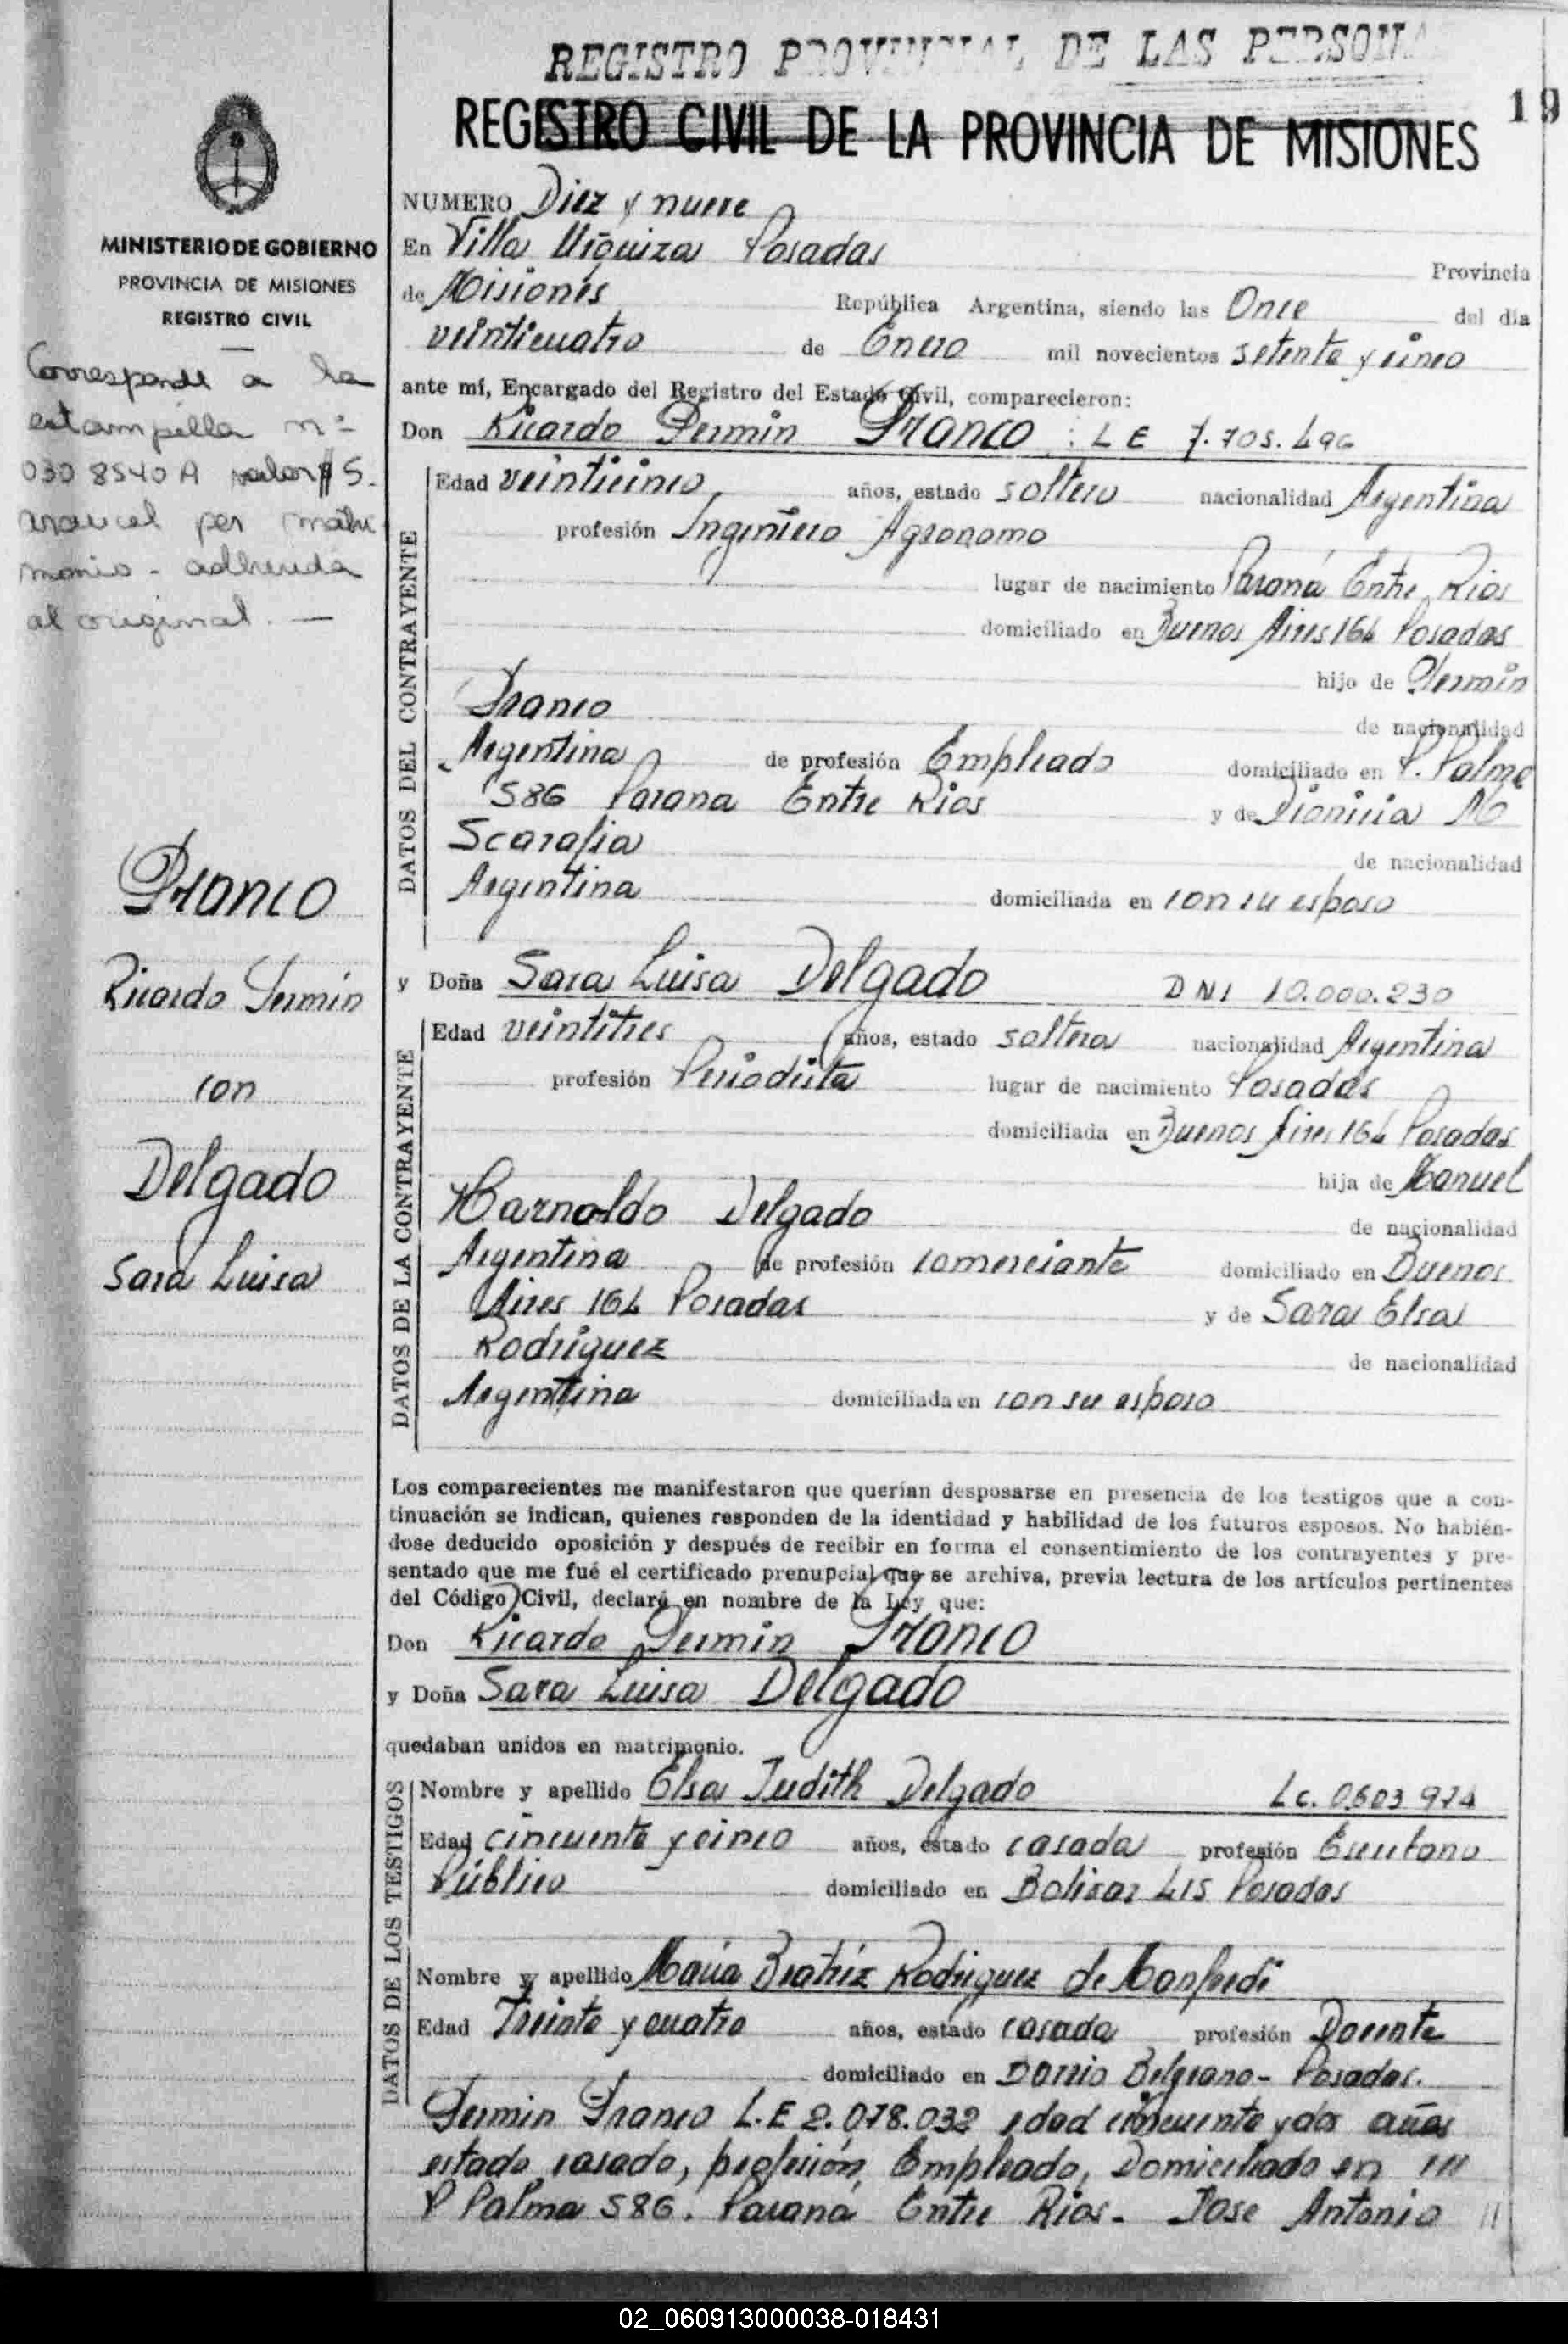 REGISTRO PROVINCIAL DE LAS PERSONA
REGISTRO CIVIL DE LA PROVINCIA DE MISIONES
19
MINISTERIO DE GOBIERNO
PROVINCIA DE MISIONES
REGISTRO CIVIL
Corresponde a la
estampilla nº
030 8540 A valor $ 5.
arancel per matri
monio - adherida
al original. —
Franco
Ricardo Fermin
con
Delgado
Sara Luisa
NUMERO Diez y nueve
En Villa Urquiza Posadas Provincia
de Misiones República Argentina, siendo las Once del día
veinticuatro de Enero mil novecientos setenta y cinco
ante mí, Encargado del Registro del Estado Civil, comparecieron:
Don Ricardo Fermin Franco : L E 7.705.496
DATOS DEL CONTRAYENTE
Edad veinticinco años, estado soltero nacionalidad Argentina
profesión Ingeniero Agronomo
lugar de nacimiento Paraná Entre Rios
domiciliado en Buenos Aires 164 Posadas
hijo de Fermin
Franco de nacionalidad
Argentina de profesión Empleado domiciliado en P. Palma
586 Parana Entre Rios y de Dionicia M
Scarafia de nacionalidad
Argentina domiciliada en con su esposo
y Doña Sara Luisa Delgado DNI 10.000.230
DATOS DE LA CONTRAYENTE
Edad veintitres años, estado soltera nacionalidad Argentina
profesión Periodista lugar de nacimiento Posadas
domiciliada en Buenos Aires 164 Posadas
hija de Manuel
Harnoldo Delgado de nacionalidad
Argentina de profesión comerciante domiciliado en Buenos
Aires 164 Posadas y de Sara Elsa
Rodriguez de nacionalidad
Argentina domiciliada en con su esposo
Los comparecientes me manifestaron que querían desposarse en presencia de los testigos que a con-
tinuación se indican, quienes responden de la identidad y habilidad de los futuros esposos. No habién-
dose deducido oposición y después de recibir en forma el consentimiento de los contrayentes y pre-
sentado que me fué el certificado prenupcial que se archiva, previa lectura de los artículos pertinentes
del Código Civil, declaré en nombre de la Ley que:
Don Ricardo Fermin Franco
y Doña Sara Luisa Delgado
quedaban unidos en matrimonio.
DATOS DE LOS TESTIGOS
Nombre y apellido Elsa Judith Delgado Lc. 0.603 974
Edad cincuenta y cinco años, estado casada profesión Escribano
Público domiciliado en Bolivar 415 Posadas
Nombre y apellido Maria Beatriz Rodriguez de Monfredi
Edad Treinta y cuatro años, estado casada profesión Docente
domiciliado en Barrio Belgrano - Posadas.
Fermin Franco L.E 2.078.032 edad cincuenta y dos años
estado casado, profesión Empleado, Domiciliado en ///
P Palma 586. Paraná Entre Rios. Jose Antonio //
02_060913000038-018431